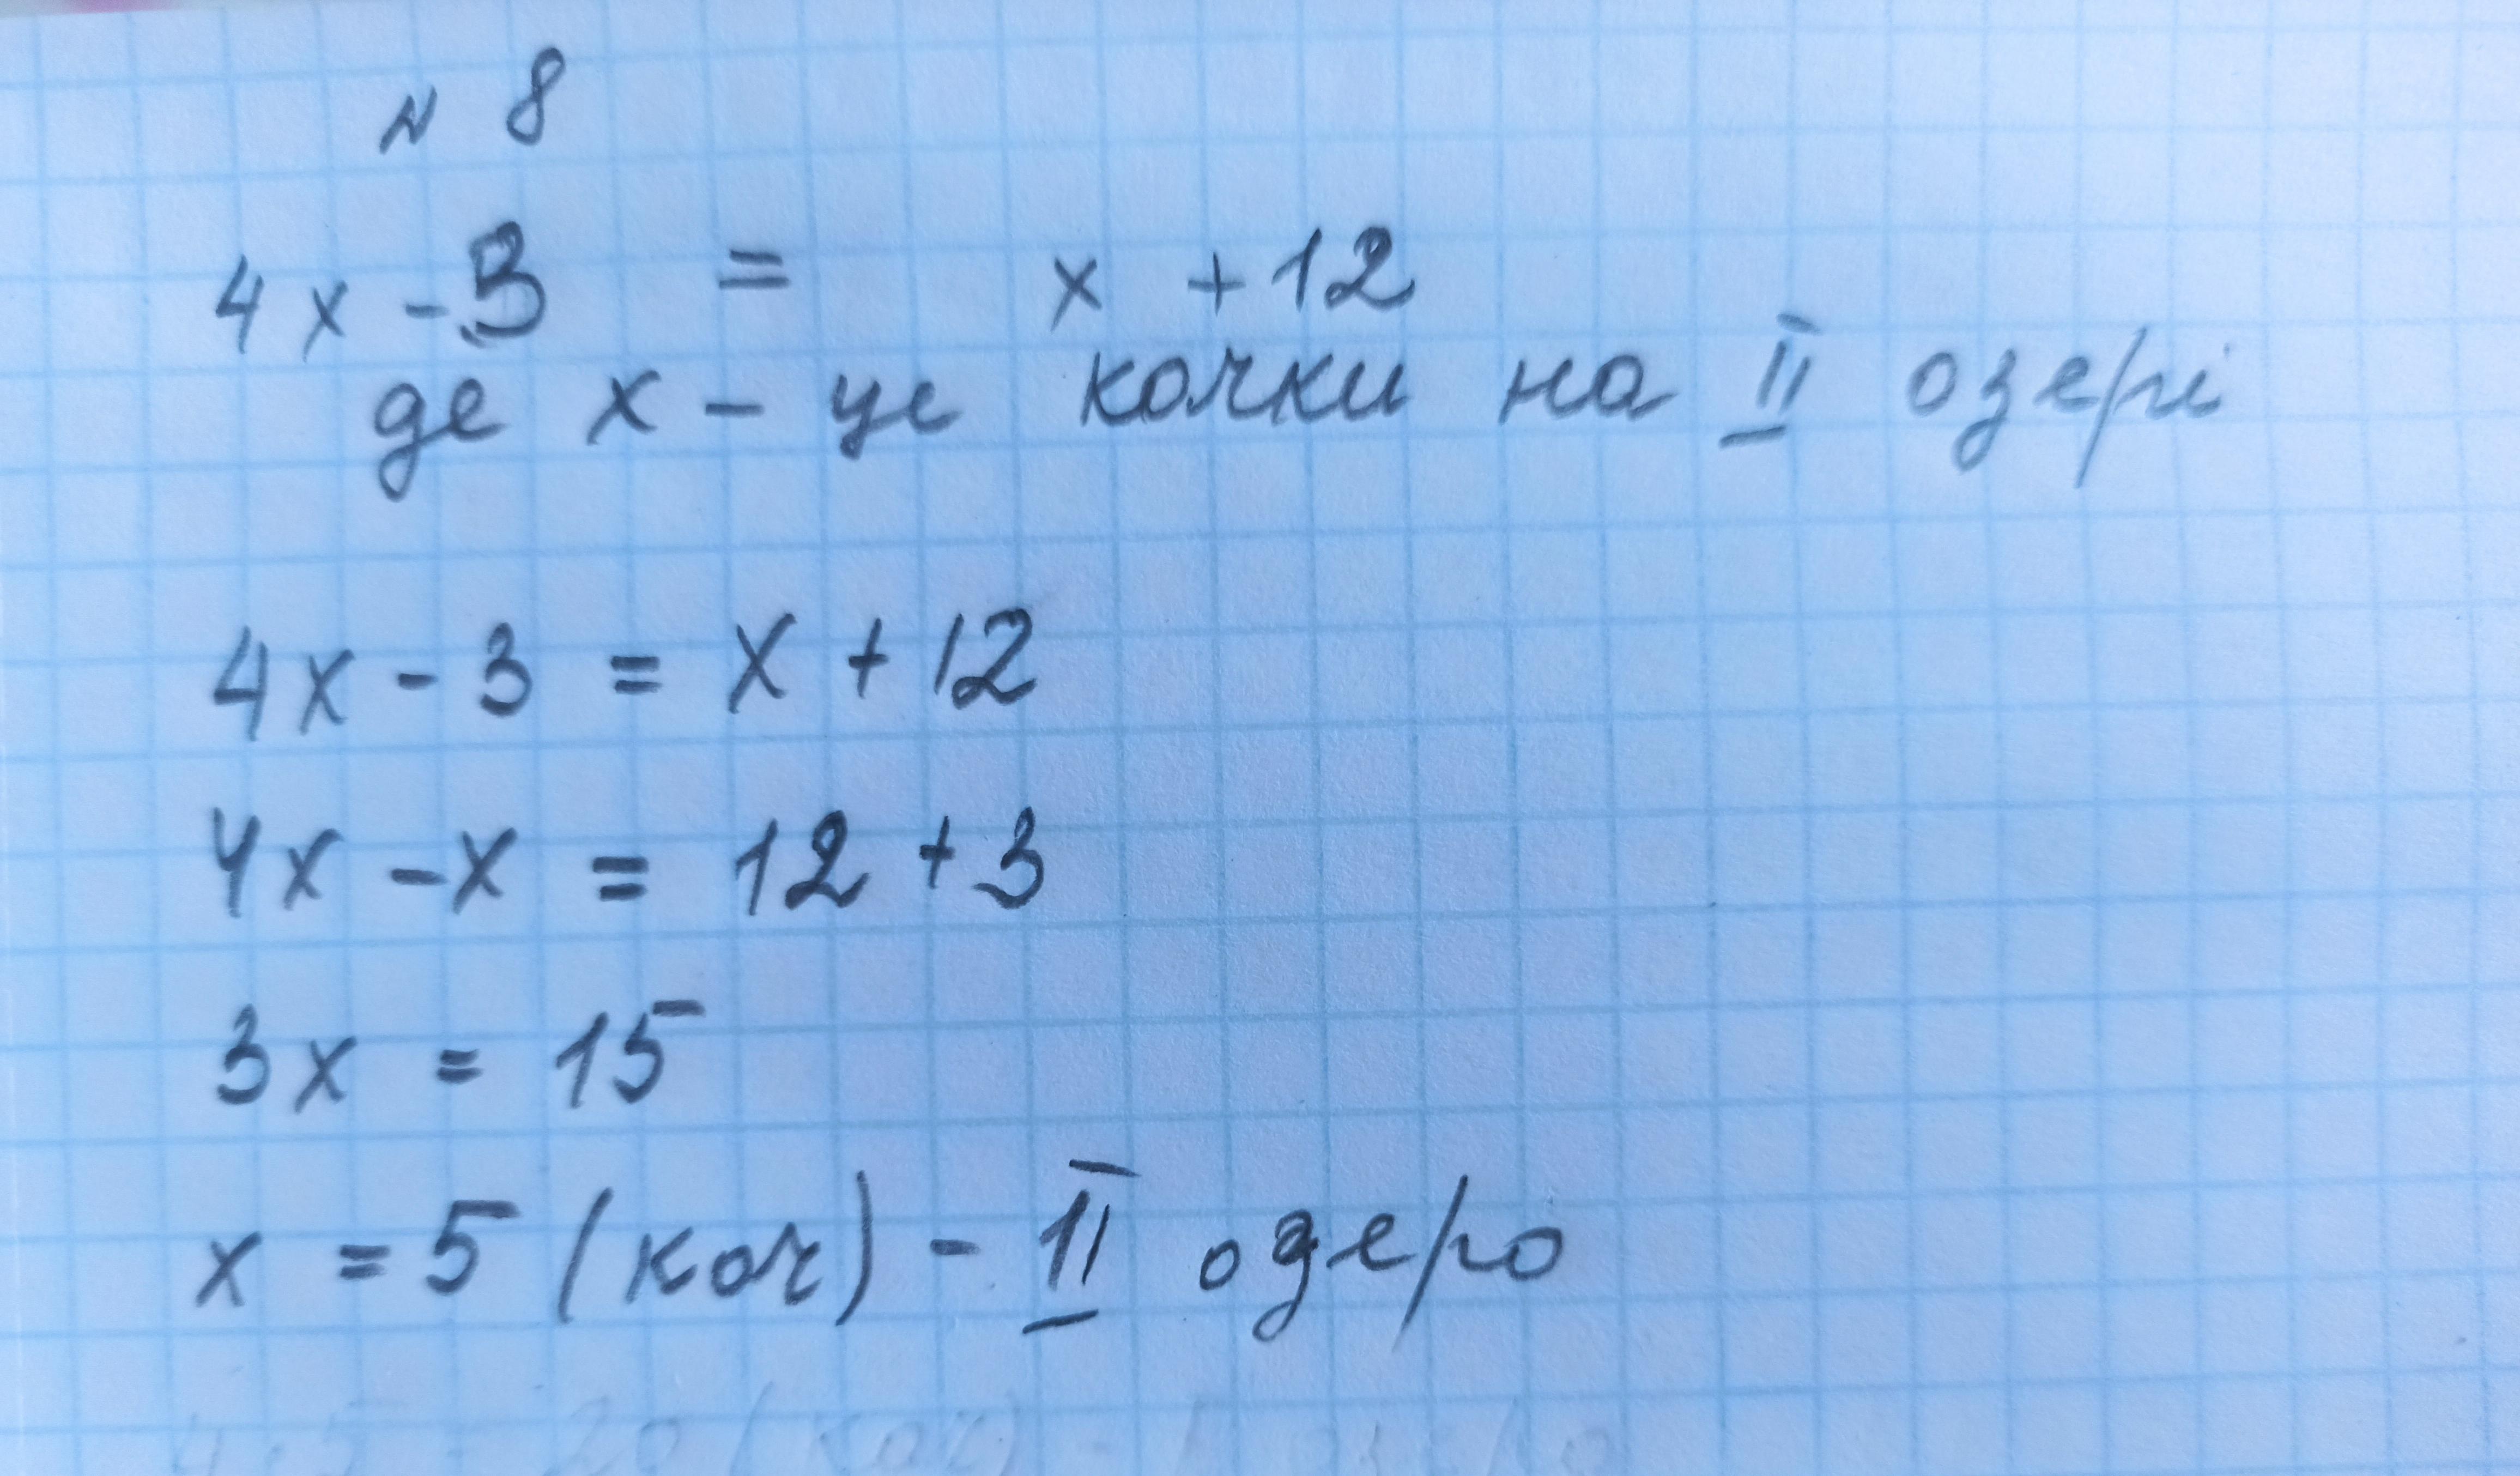 № 8
4x - 3 = x + 12
де x - це качки на II озері
4x - 3 = x + 12
4x - x = 12 + 3
3x = 15
x = 5 (кач) - II озеро
4 · 5 = 20 (кач) - I озеро